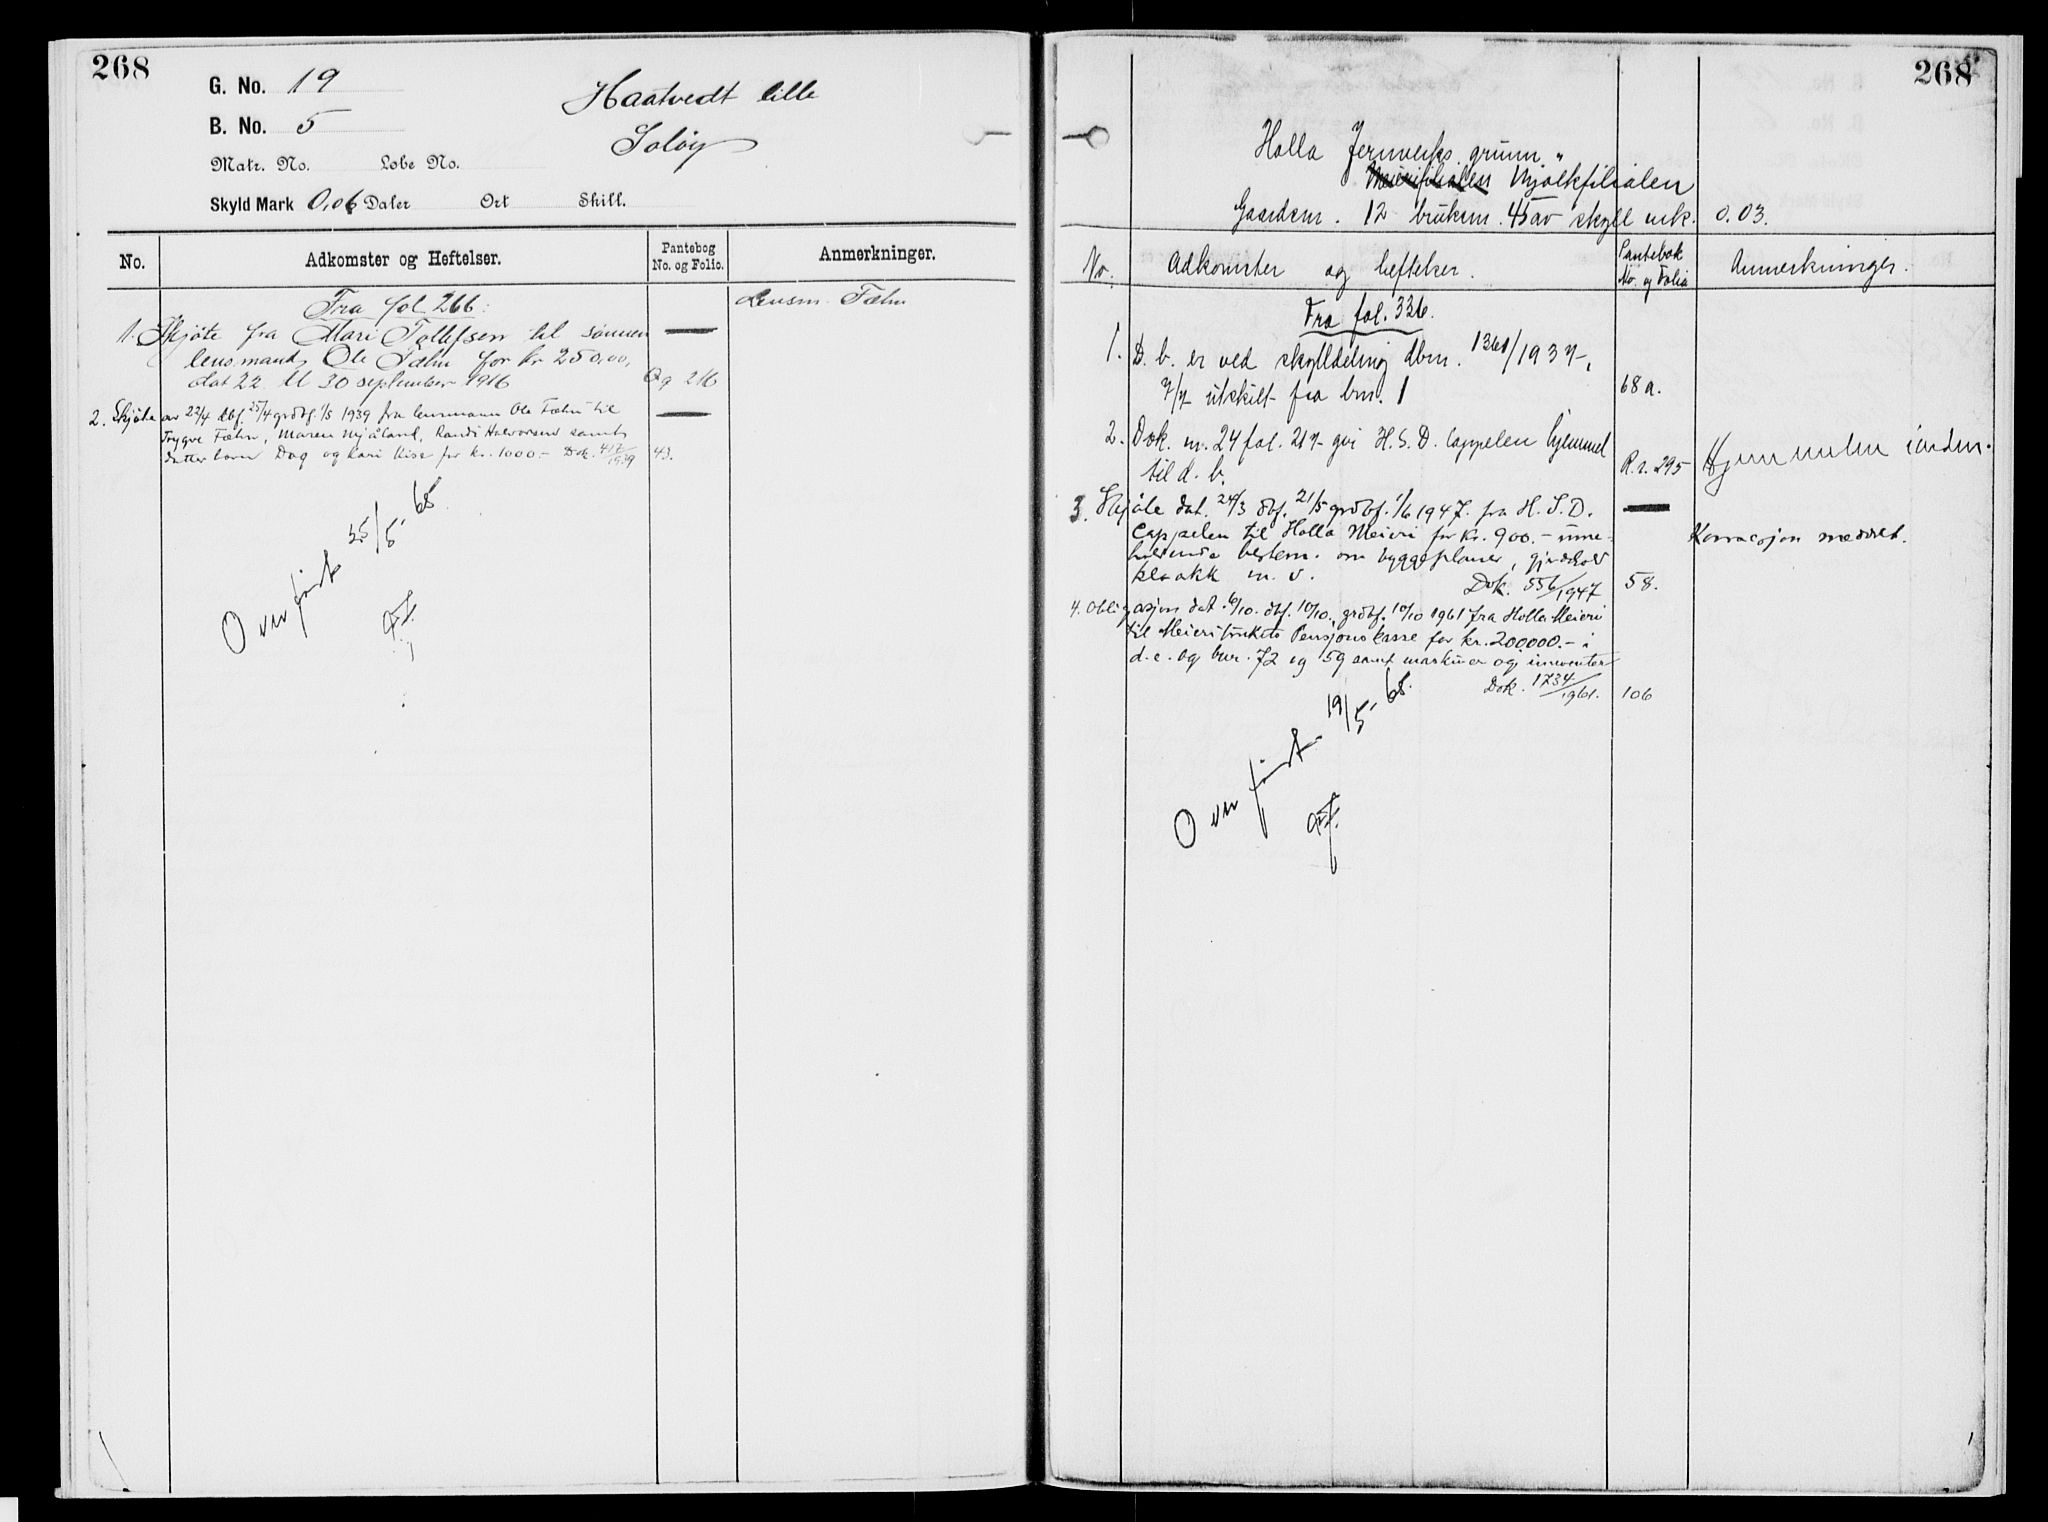 268
G. No. 19
Haatvedt lille
B. No. 5
Soløy
Matr. No. Løbe No.
Skyld Mark 0,06 Daler Ort Skill.
No.
Adkomster og Heftelser.
Pantebog
No. og Folio.
Anmerkninger.
Fra fol 266:
Lensm. Fæhn
1. Skjøte fra Mari Tollefsen til sønnen
lensmand Ole Fæhn for kr 250,00,
dat 22 tl 30 september 1916
Qq 216
2. Skjøte av 22/4 dbf. 25/4 grdbf. 1/5 1939 fra lensmann Ole Fæhn til
Trygve Fæhn, Maren Mjåland, Randi Halvorsen samt
datterbarn Dag og Kari Kise for kr. 1000.- Dok. 417/1939
43.
Overført 25/5-68.
268
Holla Jernverks grunn "
Meierifilialen Mjølkfilialen
Gaardsnr. 12 bruksnr. 45 av skyll mk. 0.03.
No.
Adkomster og heftelser.
Pantebok
No. og Folio
Anmerkninger.
Fra fol. 336.
1. D. b. er ved skylldeling dbnr. 1361/1937,
7/7 utskilt fra bnr. 1
68 a.
2. Dok. nr. 24 fol. 217 gir H. S. D. Cappelen hjemmel
til d. b.
R.r. 295
Hjemmelen i orden.
3. Skjøte dat. 24/3 dbf. 21/5 grdbf. 1/6 1947. fra H. S. D.
Cappelen til Holla Meieri for kr. 900.- inne-
holdende bestem. om byggeplaner, gjerdehold
kloakk m. v.
Dok. 556/1947
58.
Konsesjon meddelt.
4. Obligasjon dat. 6/10. dbf. 10/10., grdbf. 10/10 1961 fra Holla Meieri
til Meieribrukets Pensjonskasse for kr. 200000.- i
d. e. og bnr. 72 og 59 samt maskiner og inventar
Dok. 1734/1961.
106
Overført 19/5-68.